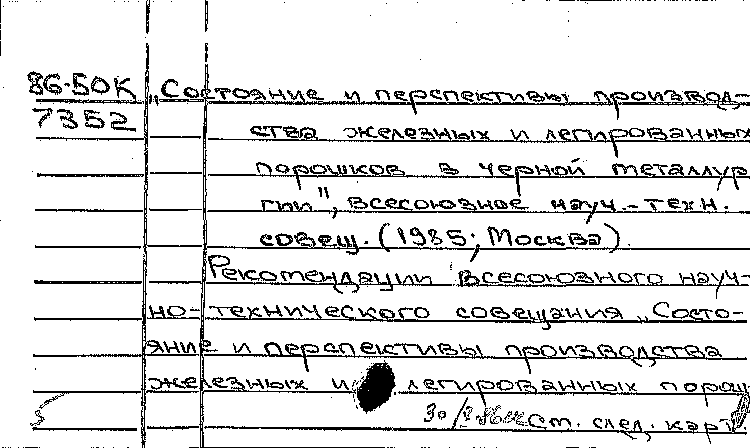 86-50К „Состояние и перспективы производ-
7352
ства железных и легированных
порошков в черной металлур
гии", всесоюзное науч.-техн.
совещ. (1985; Москва).
Рекомендации Всесоюзного науч-
но-технического совещания „Состо-
яние и перспективы производства
железных и легированных порош
См. след. карт.